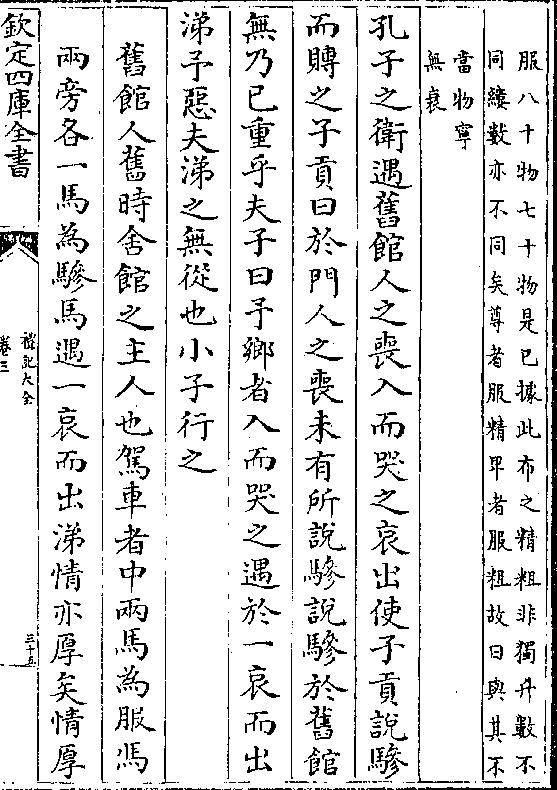 服八十物七十物是已據此布之精粗非獨升數不
同縷數亦不同矣尊者服精卑者服粗故曰與其不
當物寧
無衰
孔子之衛遇舊館人之喪入而哭之哀出使子貢說驂
而賻之子貢曰於門人之喪未有所說驂說驂於舊館
無乃已重乎夫子曰予鄉者入而哭之遇於一哀而出
涕予惡夫涕之無從也小子行之
舊館人舊時舍館之主人也駕車者中兩馬為服馬
兩旁各一馬為驂馬遇一哀而出涕情亦厚矣情厚
欽定四庫全書
禮記大全
卷三
三十五